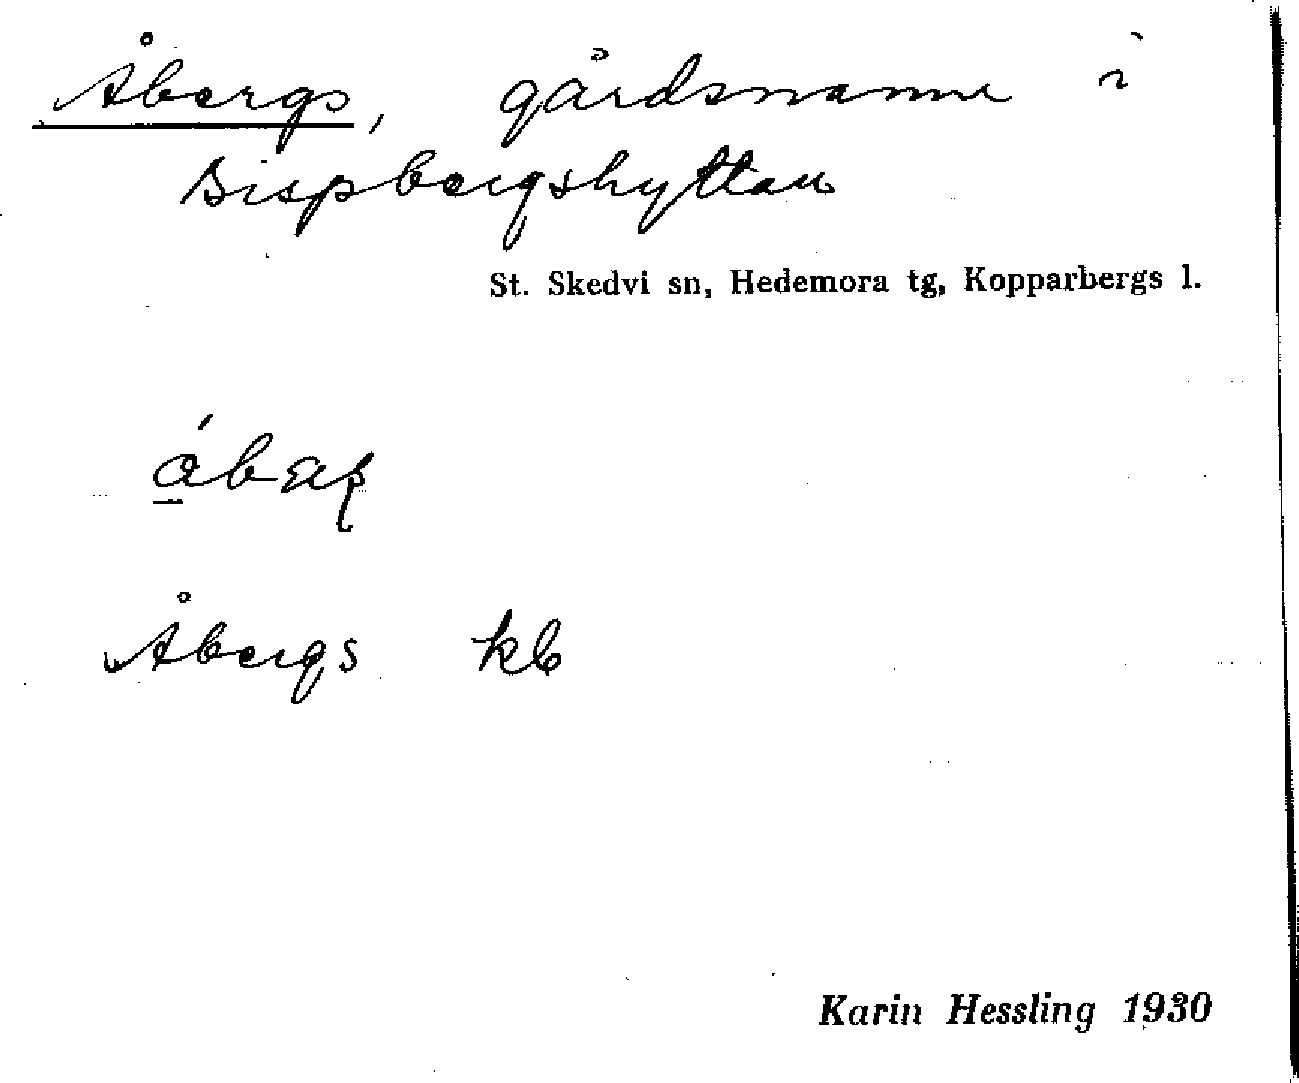 Åbergs, gårdsnamn i
Bispbergshyttan
St. Skedvi sn, Hedemora tg, Kopparbergs l.
Åbergs kb
Karin Hessling 1930